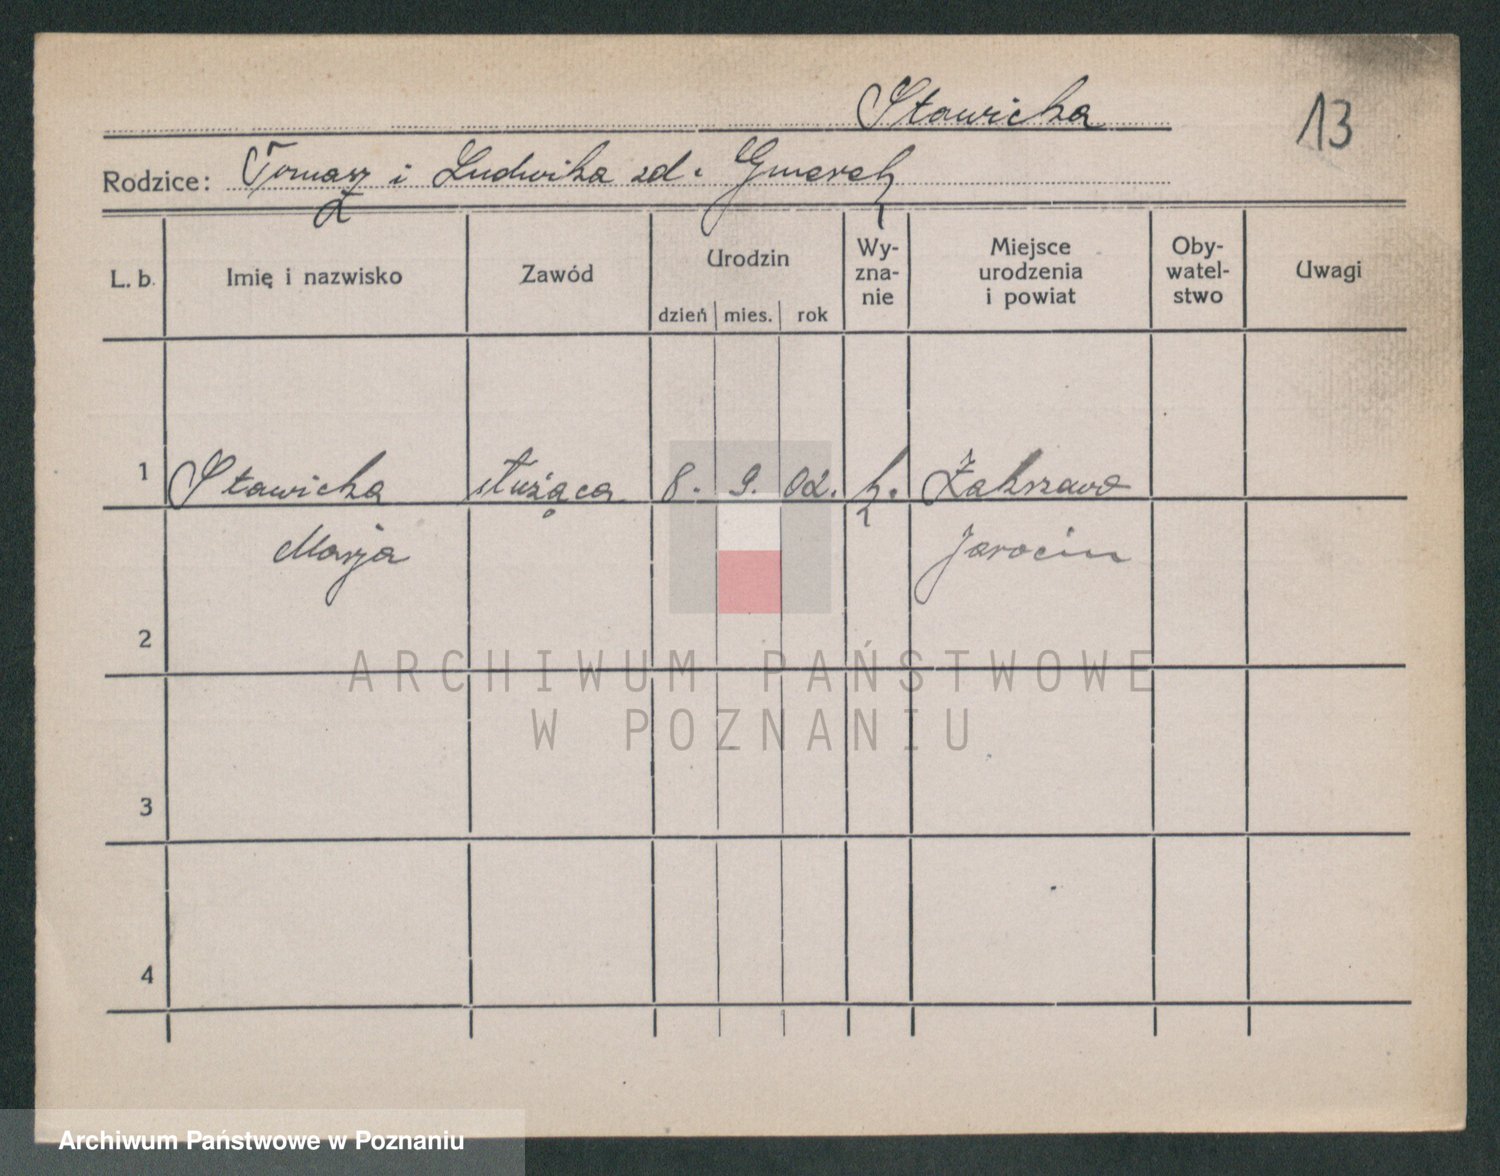 Sławicka
13
Rodzice: Tomasz i Ludwika zd. Gmerek
L. b.
Imię i nazwisko
Zawód
Urodzin
dzień
mies.
rok
Wy-
zna-
nie
Miejsce
urodzenia
i powiat
Oby-
watel-
stwo
Uwagi
1
Sławicka
służąca
8.
9.
02.
k.
Zakrzewo
Marja
Jarocin
2
3
4
ARCHIWUM PAŃSTWOWE
W POZNANIU
Archiwum Państwowe w Poznaniu